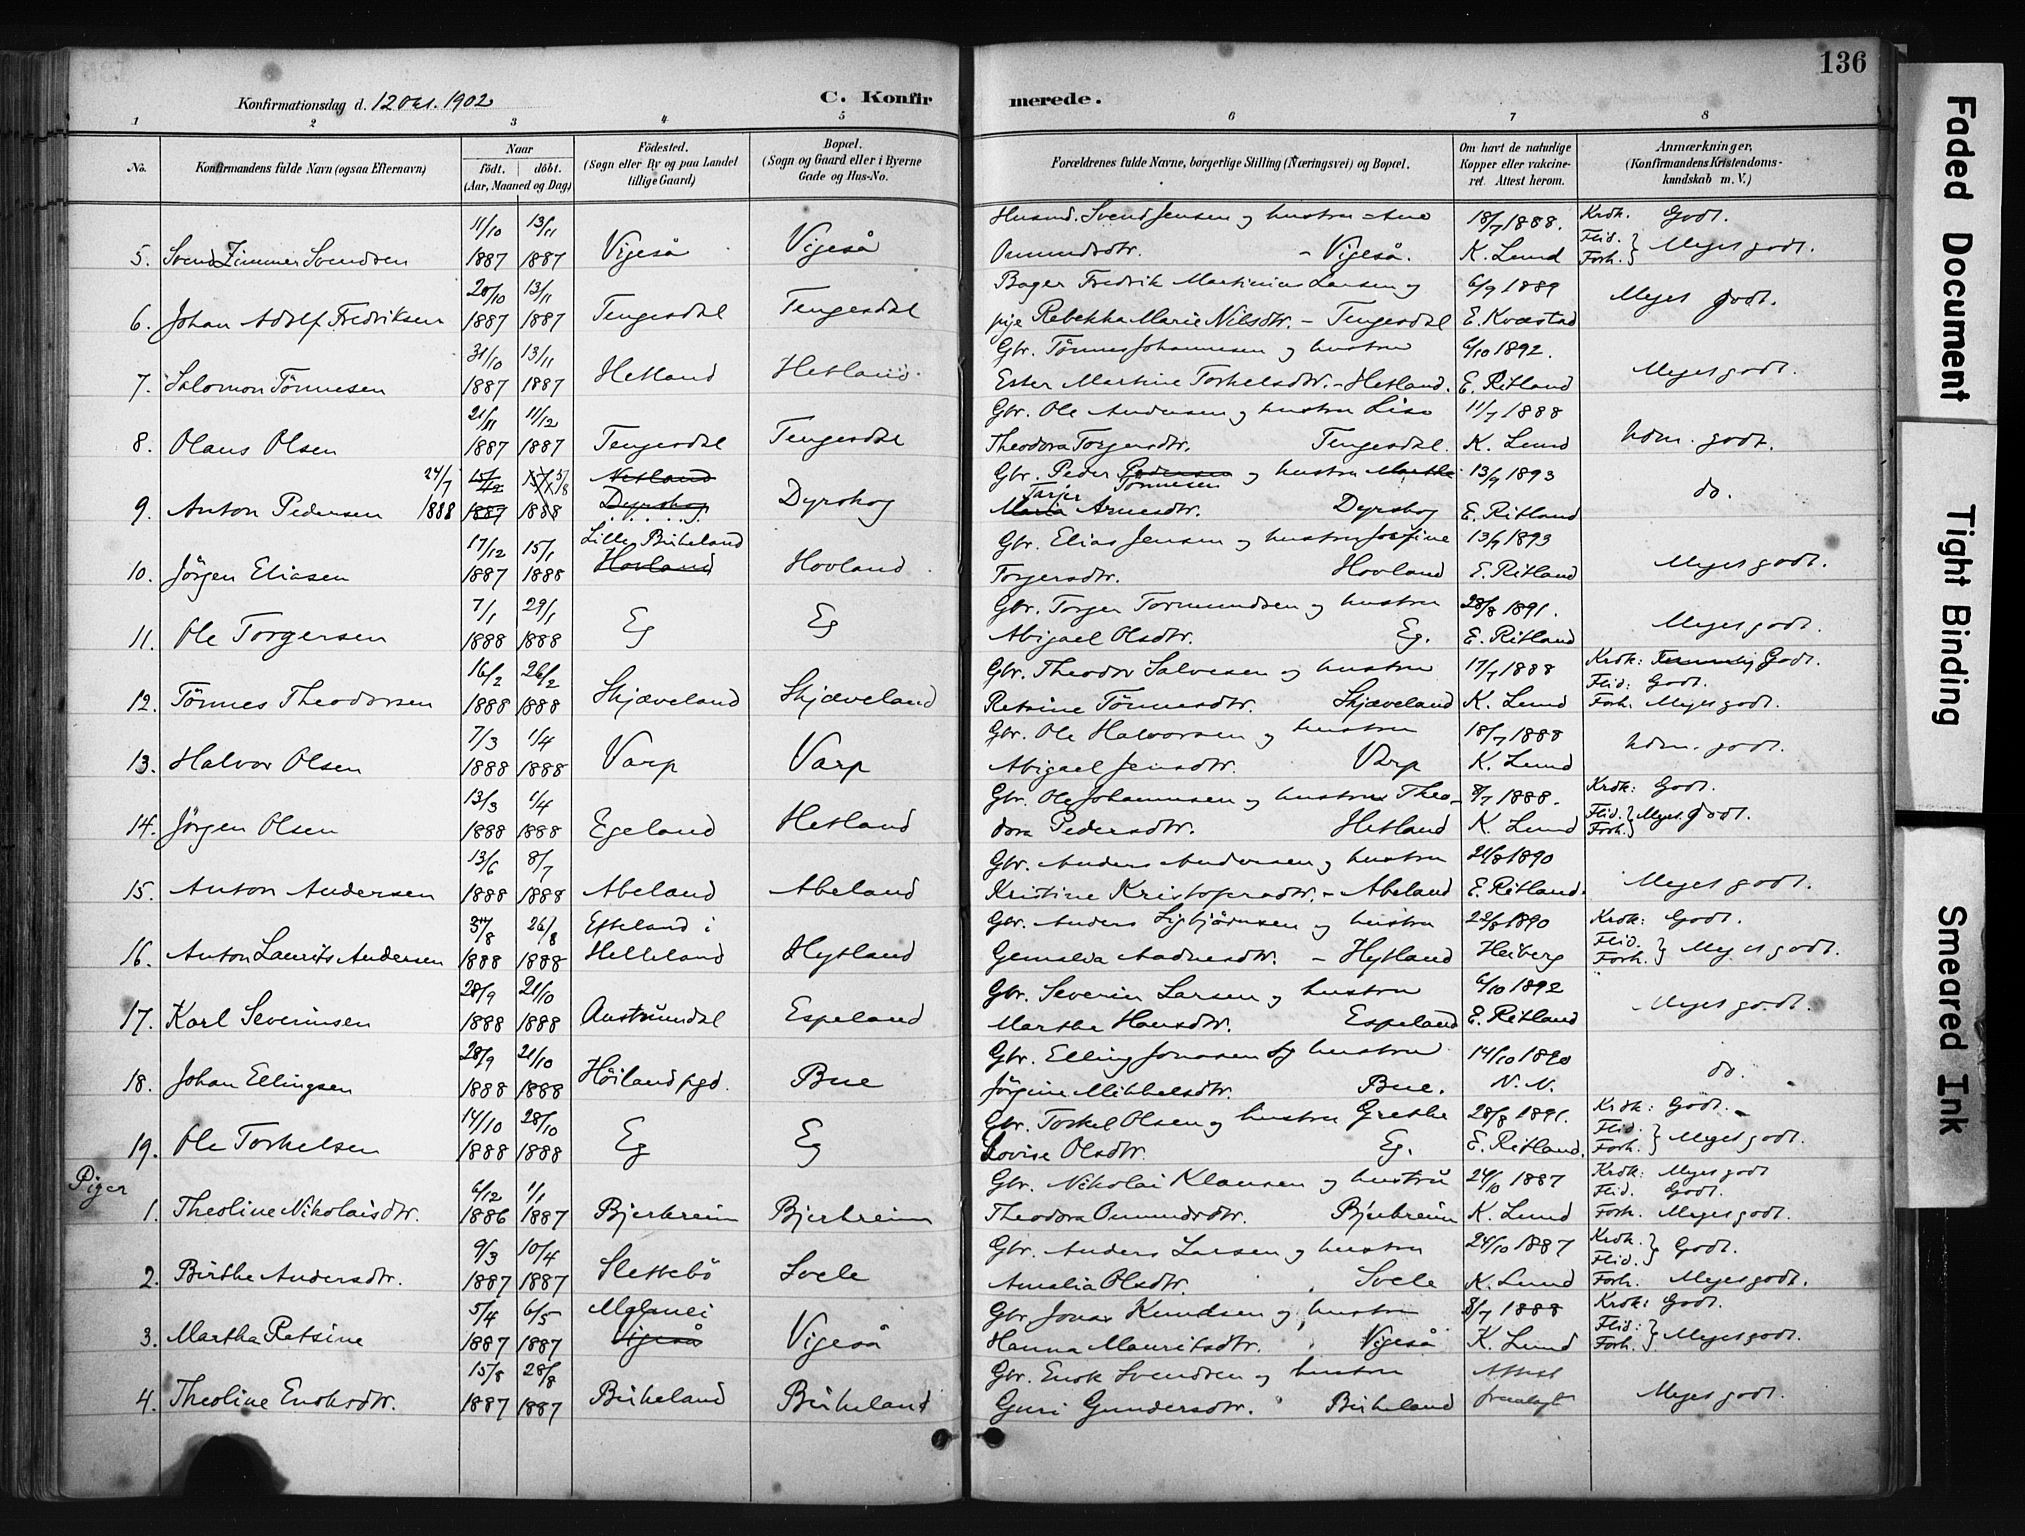 136
Konfirmationsdag d. 12 Okt. 1902
C. Konfirmerede.
1 2 3 4 5 6 7 8
No. Konfirmandens fulde Navn (ogsaa Efternavn) Naar født. døbt. (Aar, Maaned og Dag) Födested. (Sogn eller By og paa Landet tillige Gaard) Bopæl. (Sogn og Gaard eller i Byerne Gade og Hus-No. Forældrenes fulde Navne, borgerlige Stilling (Næringsvei) og Bopæl. Om havt de naturlige Kopper eller vakcineret. Attest herom. Anmærkninger, (Konfirmandens Kristendomskundskab m. V.)
11/10 13/11 Husmd. Svend Jensen og hustru Ane 18/7 1888. Krdk. Godt.
5. Svend Zimmer Svendsen 1887 1887 Vigeså Vigeså Omundsdtr. - Vigeså. K. Lund Flid. Forh. } Meget godt.
20/10 13/11 Bager Fredrik Martinius Larsen og 6/9 1889
6. Johan Adolf Fredriksen 1887 1887 Tengesdal Tengesdal pige Rebekka Marie Nilsdtr. - Tengesdal E. Kvæstad Meget godt.
31/10 13/11 Gbr. Tönnes Johannesen og hustru 6/10 1892.
7. Salomon Tönnesen 1887 1887 Hetland Hetland Ester Martine Torkelsdtr. - Hetland. E. Ritland Meget godt.
21/11 11/12 Gbr. Ole Andersen og hustru Lise 11/7 1888
8. Olaus Olsen 1887 1887 Tengesdal Tengesdal Theodora Torgersdtr. Tengesdal. K. Lund Ndm. godt.
24/7 15/12 5/8 Netland Gbr. Peder Pedersen Tönnesen og hustru Martha 13/9 1893
9. Anton Pedersen 1888 1887 1888 Dyrskog Dyrskog Maria Tarjer Arnesdtr. Dyrskog E. Ritland do.
17/12 15/1 Lille Birkeland Gbr. Elias Jensen og hustru Josefine 13/9 1893
10. Jörgen Eliasen 1887 1888 Hovland Hovland Torgersdtr. Hovland E. Ritland Meget godt.
7/1 29/1 Gbr. Torger Tormundsen og hustru 28/8 1891.
11. Ole Torgersen 1888 1888 Eg Eg Abigael Olsdtr. Eg. E. Ritland Meget godt.
16/2 26/2 Gbr. Theodor Salvesen og hustru 17/7 1888 Krdk: Temmelig Godt.
12. Tönnes Theodorsen 1888 1888 Skjæveland Skjæveland Retsine Tönnesdtr. Skjæveland K. Lund Flid: Godt. Forh. Meget godt.
7/3 1/4 Gbr. Ole Halvorsen og hustru 18/7 1888
13. Halvor Olsen 1888 1888 Varp Varp Abigael Jensdtr. Varp K. Lund Ndm. godt.
13/3 1/4 Gbr. Ole Johannesen og hustru Theo- 8/7 1888. Krdk: Godt.
14. Jörgen Olsen 1888 1888 Egeland Hetland dora Pedersdtr. Hetland K. Lund Flid. Forh. } Meget godt.
13/6 8/7 Gbr. Anders Andersen og hustru 21/8 1890
15. Anton Andersen 1888 1888 Abeland Abeland Kristine Kristofersdtr. - Abeland E. Ritland. Meget godt.
3/8 26/8 Efteland i Gbr. Anders Sigbjörnsen og hustru 22/8 1890 Krdk: Godt.
16. Anton Laurits Andersen 1888 1888 Helleland Hytland Gemalda Aadnesdtr. - Hytland Heiberg Flid. Forh. } Meget godt.
28/9 21/10 Gbr. Severin Larsen og hustru 6/10 1892
17. Karl Severinsen 1888 1888 Austrumdal Espeland Marthe Hansdtr. Espeland E. Ritland Meget godt.
28/9 21/10 Gbr. Elling Jonasen og hustru 14/10 1890
18. Johan Ellingsen 1888 1888 Höiland pgd. Bue Jörgine Mikkelsdtr. Bue. N. N. do.
14/10 28/10 Gbr. Torkel Olsen og hustru Grethe 28/8 1891. Krdk: Godt.
19. Ole Torkelsen 1888 1888 Eg Eg Lovise Olsdtr. Eg. E. Ritland. Flid. Forh. } Meget godt.
Piger
6/12 1/1 Gbr. Nikolai Klausen og hustru 24/10 1887 Krdk: Meget godt
1. Theoline Nikolaisdtr. 1886 1887 Bjerkreim Bjerkreim Theodora Omundsdtr. Bjerkreim K. Lund Flid. Godt. Forh. Meget godt.
9/3 10/4 Gbr. Anders Larsen og hustru 24/10 1887 Krdk. Flid. } Godt.
2. Birthe Andersdtr. 1887 1887 Slettebö Svele Amalia Olsdtr. Svele K. Lund Forh. Meget godt.
5/4 6/5 Gbr. Jonas Knudsen og hustru 8/7 1888 Krdk: Godt.
3. Martha Retsine 1887 1887 Vigeså Vigeså Hanna Mauritsdtr. Vigeså K. Lund Flid: Forh. } Meget godt.
15/8 28/8 Gbr. Enok Svendsen og hustru Attest
4. Theoline Enoksdtr. 1887 1887 Birkeland Birkeland Guri Gundersdtr. Birkeland fremlagt Meget godt.
Faded Document
Tight Binding
Smeared Ink